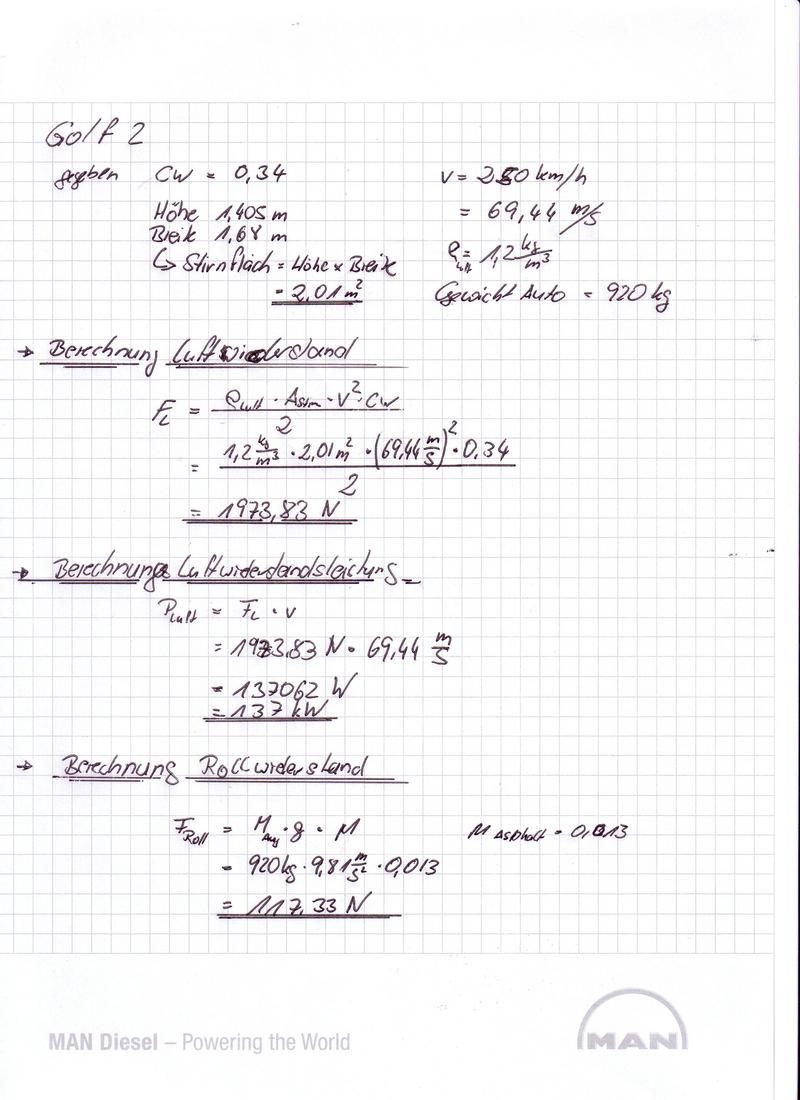 Golf 2
gegeben CW = 0,34
Höhe 1,405 m
Breite 1,68 m
↳ Stirnfläch = Höhe x Breite
= 2,01 m²
v = 250 km/h
= 69,44 m/s
ρLuft = 1,2 kg/m³
Gewicht Auto = 920 kg
→ Berechnung Luftwiederstand
FL = ρLuft · AStirn · v² · cw / 2
= 1,2 kg/m³ · 2,01 m² · (69,44 m/s)² · 0,34 / 2
= 1973,83 N
→ Berechnung Luftwiderstandsleistung
PLuft = FL · v
= 1973,83 N · 69,44 m/s
= 137062 W
= 137 kW
→ Berechnung Rollwiderstand
FRoll = M · g · μ
μ Asphalt = 0,013
= 920 kg · 9,81 m/s² · 0,013
= 117,33 N
MAN Diesel – Powering the World
MAN